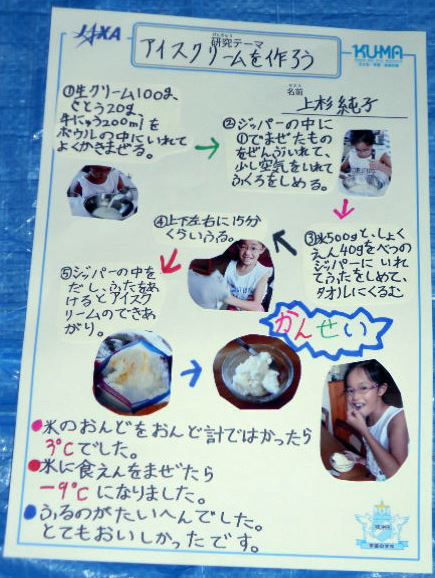 JAXA
研究テーマ
けんきゅう
アイスクリームを作ろう
KU-MA
名前
上杉純子
①生クリーム100g、
さとう20g
牛にゅう200mlを
ボウルの中にいれて
よくかきまぜる。
②ジッパーの中に
①でまぜたもの
をぜんぶいれて、
少し空気をいれて
ふくろをしめる。
③氷500gと、しょく
えん40gをべつの
ジッパーにいれ
てふたをしめて、
タオルにくるむ
④上下左右に15分
くらいふる。
⑤ジッパーの中を
だし、ふたをあ
けるとアイスク
リームのできあ
がり。
かんせい
氷のおんどをおんど計ではかったら
3℃でした。
氷に食えんをまぜたら
-9℃になりました。
ふるのがたいへんでした。
とてもおいしかったです。
KU-MA
宇宙の学校